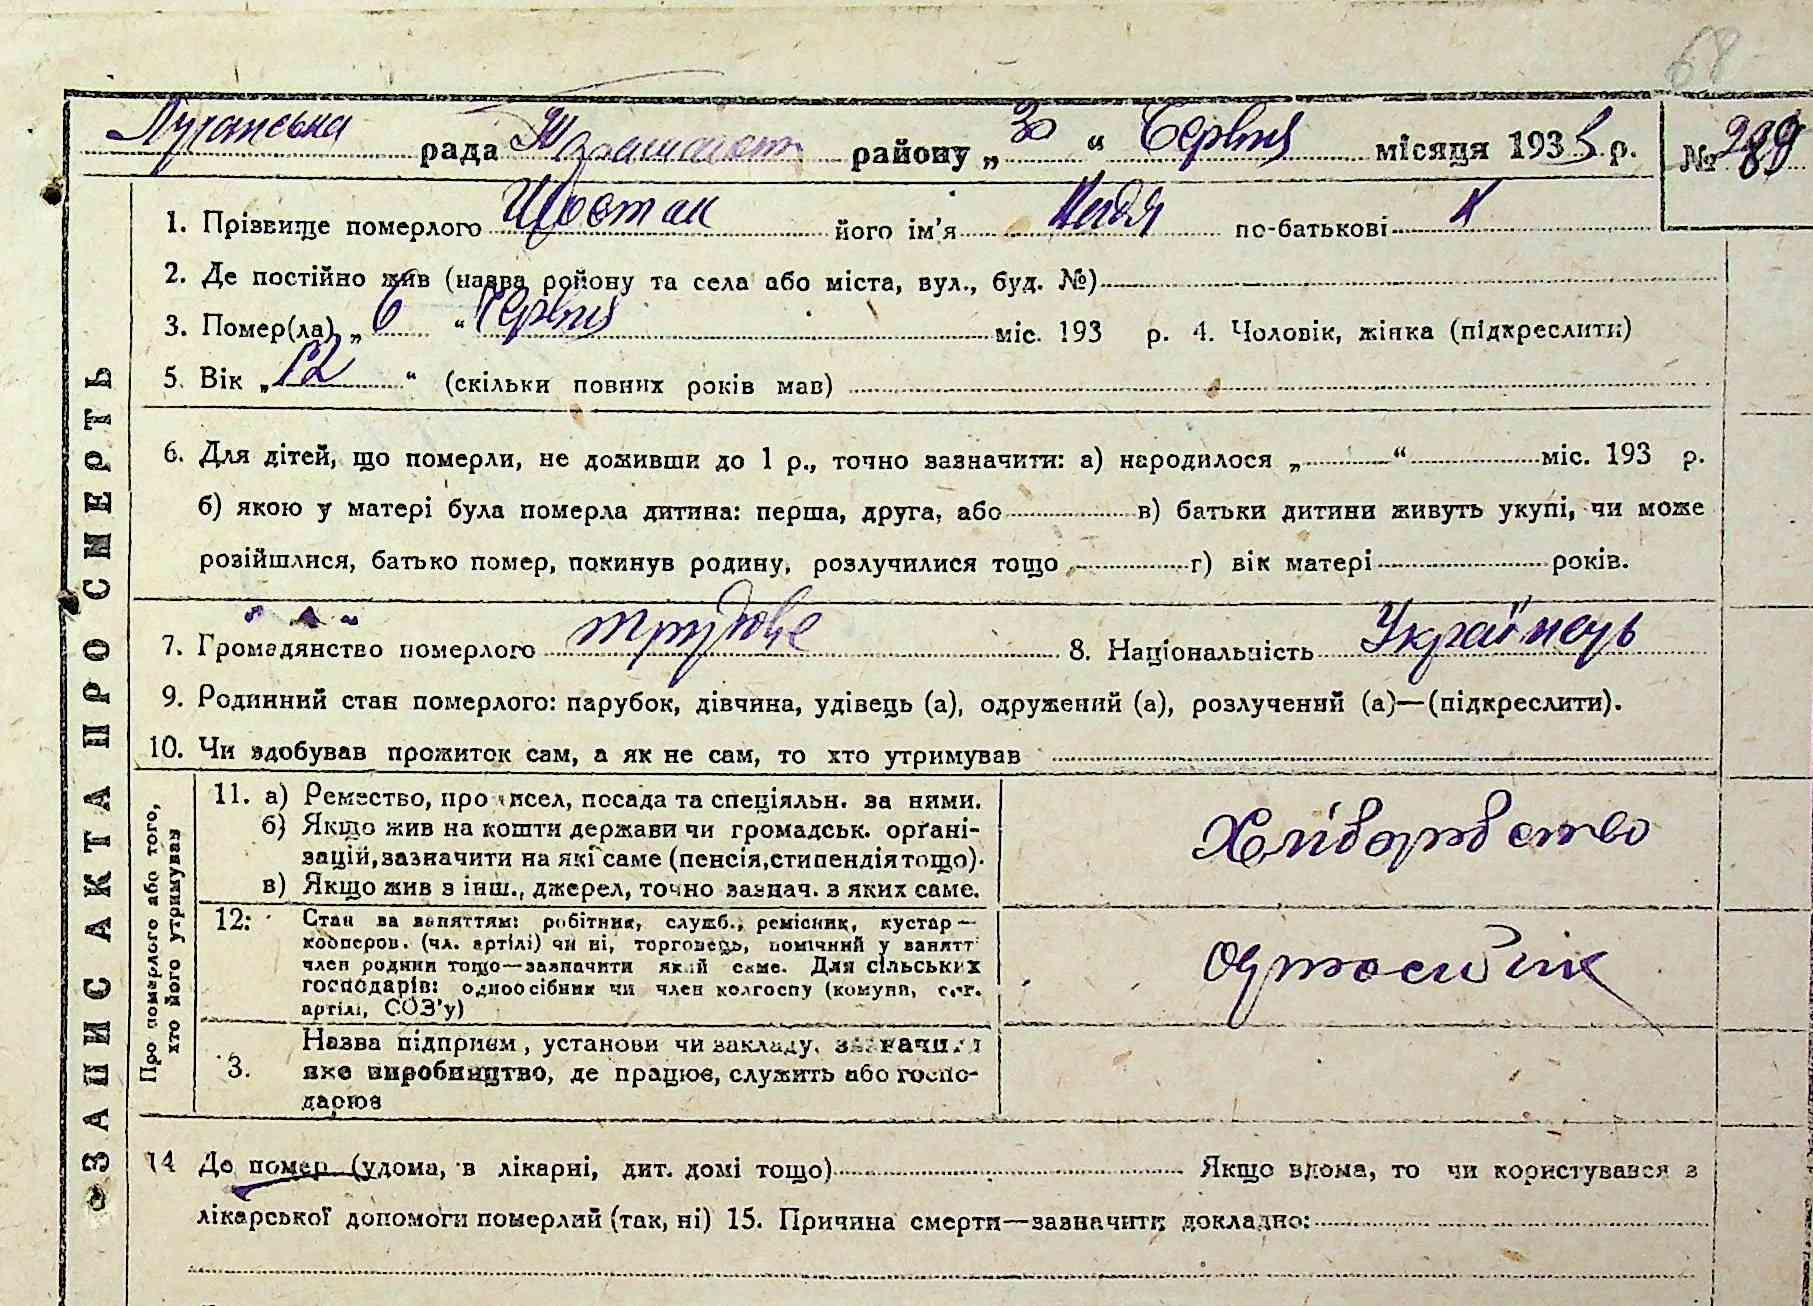 68
Луганська рада району „30“ Червня місяця 1933 р. № 289
1. Прізвище померлого Шостак його ім'я Надя по-батькові Х
2. Де постійно жив (назва району та села або міста, вул., буд. №)
3. Помер(ла) „6“ Червня міс. 193 р. 4. Чоловік, жінка (підкреслити)
5. Вік „12“ (скільки повних років мав)
6. Для дітей, що померли, не доживши до 1 р., точно зазначити: а) народилося „ “ міс. 193 р.
б) якою у матері була померла дитина: перша, друга, або в) батьки дитини живуть укупі, чи може
розійшлися, батько помер, покинув родину, розлучилися тощо г) вік матері років.
7. Громадянство померлого трудове 8. Національність Українець
9. Родинний стан померлого: парубок, дівчина, удівець (а), одружений (а), розлучений (а)—(підкреслити).
10. Чи здобував прожиток сам, а як не сам, то хто утримував
ЗАПИС АКТА ПРО СМЕРТЬ
Про померлого або того,
хто його утримував
11. а) Ремество, про исел, посада та спеціяльн. за ними.
б) Якщо жив на кошти держави чи громадськ. орґані-
зацій, зазначити на які саме (пенсія, стипендія тощо).
в) Якщо жив з інш., джерел, точно зазнач. з яких саме.
Хліборобство
12. Стан за заняттям: робітник, служб., ремісник, кустар—
кооперов. (чл. артілі) чи ні, торговець, помічний у занятт
член родини тощо—зазначити який саме. Для сільських
господарів: одноосібник чи член колгоспу (комуни, с.-г.
артілі, СОЗ'у)
одноосібник
3. Назва підприєм, установи чи закладу,
яке виробництво, де працює, служить або госпо-
дарює
14 Де помер (удома, в лікарні, дит. домі тощо) Якщо вдома, то чи користувався з
лікарської допомоги померлий (так, ні) 15. Причина смерти—зазначити докладно: